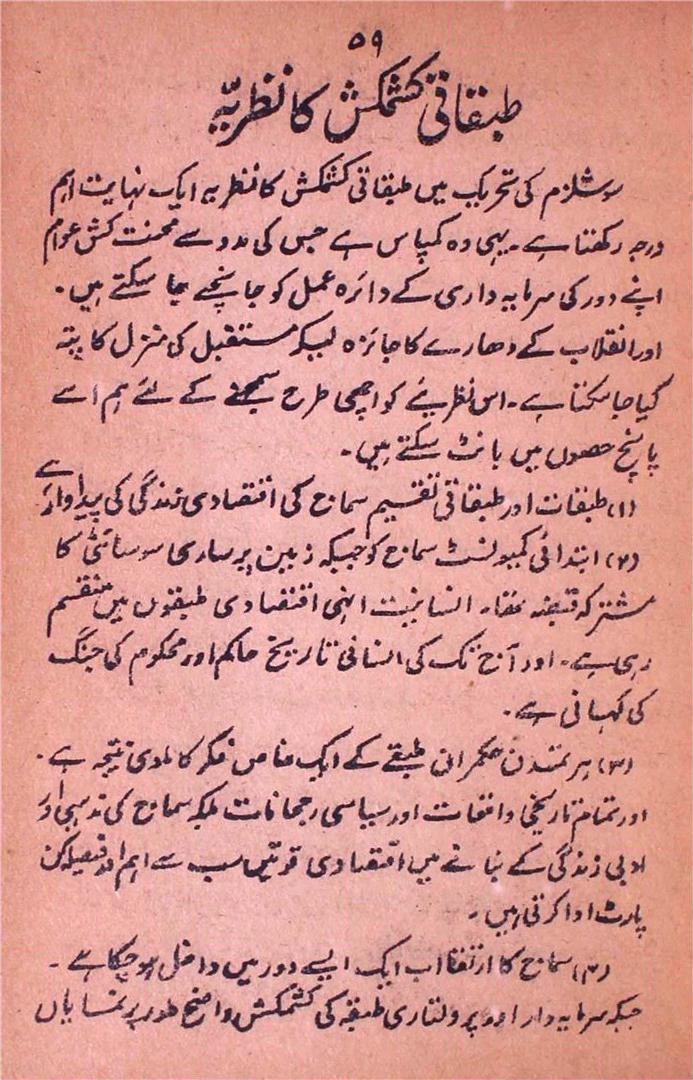 ۵۹
طبقاتی کشمکش کا نظریّہ
سوشلزم کی تحریک میں طبقاتی کشمکش کا نظریہ ایک نہایت اہم
درجہ رکھتا ہے۔ یہی وہ کمپاس ہے جس کی مدد سے محنت کش عوام
اپنے دور کی سرمایہ داری کے دائرہ عمل کو جانچے جا سکتے ہیں۔
اور انقلاب کے دھارے کا جائزہ لیکر مستقبل کی منزل کا پتہ
کیا جا سکتا ہے۔ اس نظریئے کو اچھی طرح سمجھنے کے لئے ہم اسے
پانچ حصوں میں بانٹ سکتے ہیں۔
(۱) طبقات اور طبقاتی تقسیم سماج کی اقتصادی زندگی کی پیداوار ہے
(۲) ابتدائی کمیونسٹ سماج کو جبکہ زمین پر ساری سوسائٹی کا
مشترکہ قبضہ تھا۔ انسانیت انہی اقتصادی طبقوں میں منقسم
رہی ہے۔ اور آج تک کی انسانی تاریخ حاکم اور محکوم کی جنگ
کی کہانی ہے۔
(۳) ہر تمدن حکمران طبقے کے ایک خاص فکر کا مادی نتیجہ ہے۔
اور تمام تاریخی واقعات اور سیاسی رجحانات بلکہ سماج کی مذہبی اور
ادبی زندگی کے بنانے میں اقتصادی قوتیں سب سے اہم اور فیصلہ کن
پارٹ ادا کرتی ہیں۔
(۴) سماج کا ارتقا اب ایک ایسے دور میں داخل ہو چکا ہے۔
جبکہ سرمایہ دار اور پرولتاری طبقہ کی کشمکش واضح طور پر نمایاں